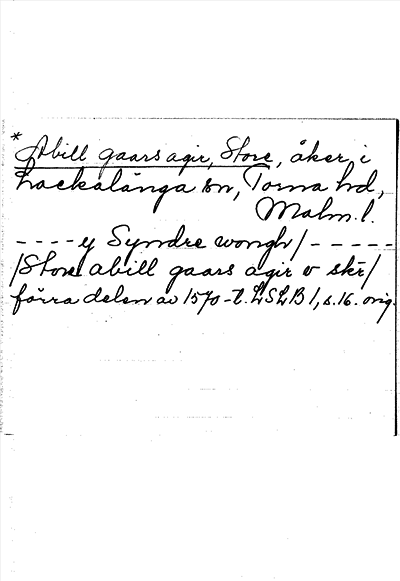 * Abill gaars agir, Store, åker i
Lackalänga sn, Torna hd,
Malm. l.
- - - - y Syndre wongh / - - - - -
/ Store abill gaars agir v skr /
förra delen av 1570-t. LSLB 1, s. 16. orig.